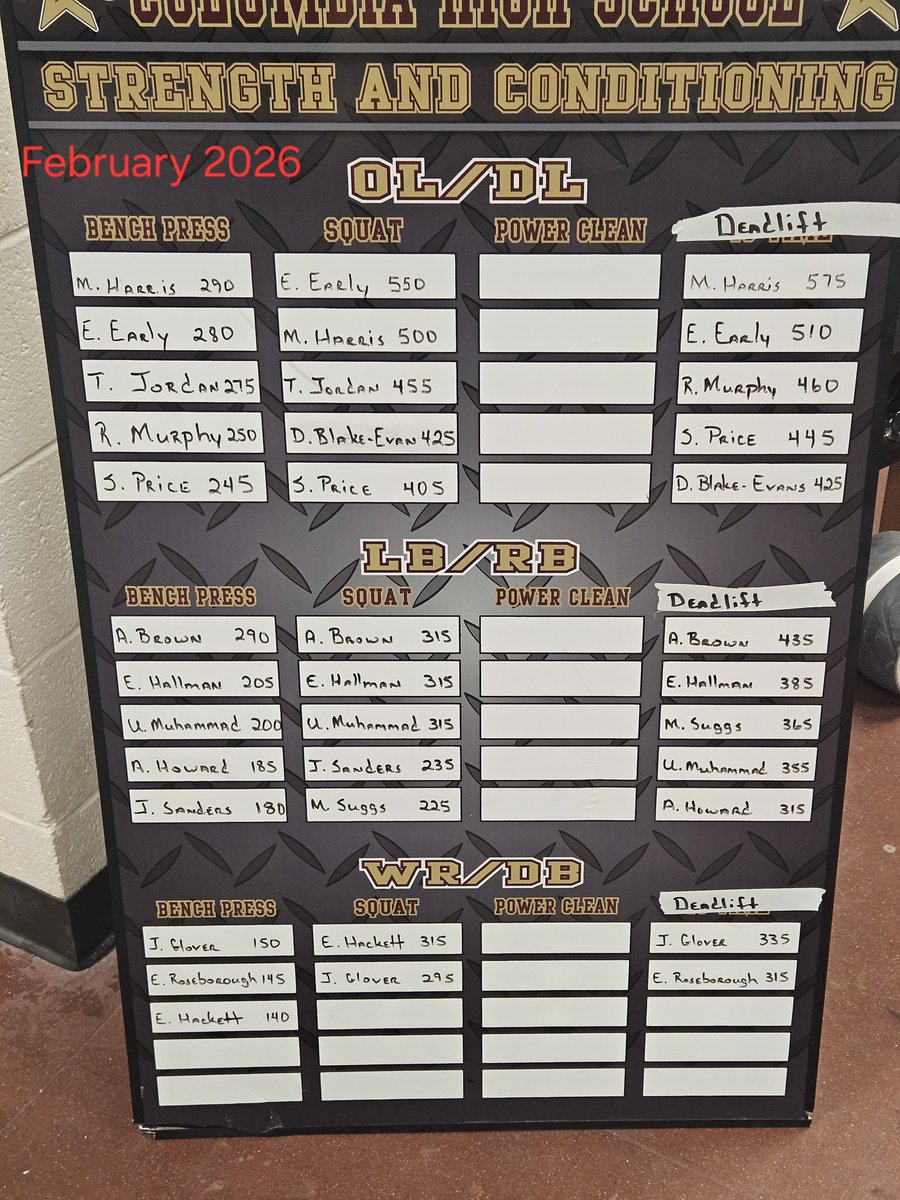 COLUMBIA HIGH SCHOOL
STRENGTH AND CONDITIONING
February 2026
OL/DL
BENCH PRESS SQUAT POWER CLEAN Deadlift
M. Harris 290 E. Early 550 M. Harris 575
E. Early 280 M. Harris 500 E. Early 510
T. Jordan 275 T. Jordan 455 R. Murphy 460
R. Murphy 250 D. Blake-Evan 425 S. Price 445
S. Price 245 S. Price 405 D. Blake-Evans 425
LB/RB
BENCH PRESS SQUAT POWER CLEAN Deadlift
A. Brown 290 A. Brown 315 A. Brown 435
E. Hallman 205 E. Hallman 315 E. Hallman 385
U. Muhammad 200 U. Muhammad 315 M. Suggs 365
A. Howard 185 J. Sanders 235 U. Muhammad 355
J. Sanders 180 M. Suggs 225 A. Howard 315
WR/DB
BENCH PRESS SQUAT POWER CLEAN Deadlift
J. Glover 150 E. Hackett 315 J. Glover 335
E. Roseborough 145 J. Glover 295 E. Roseborough 315
E. Hackett 140